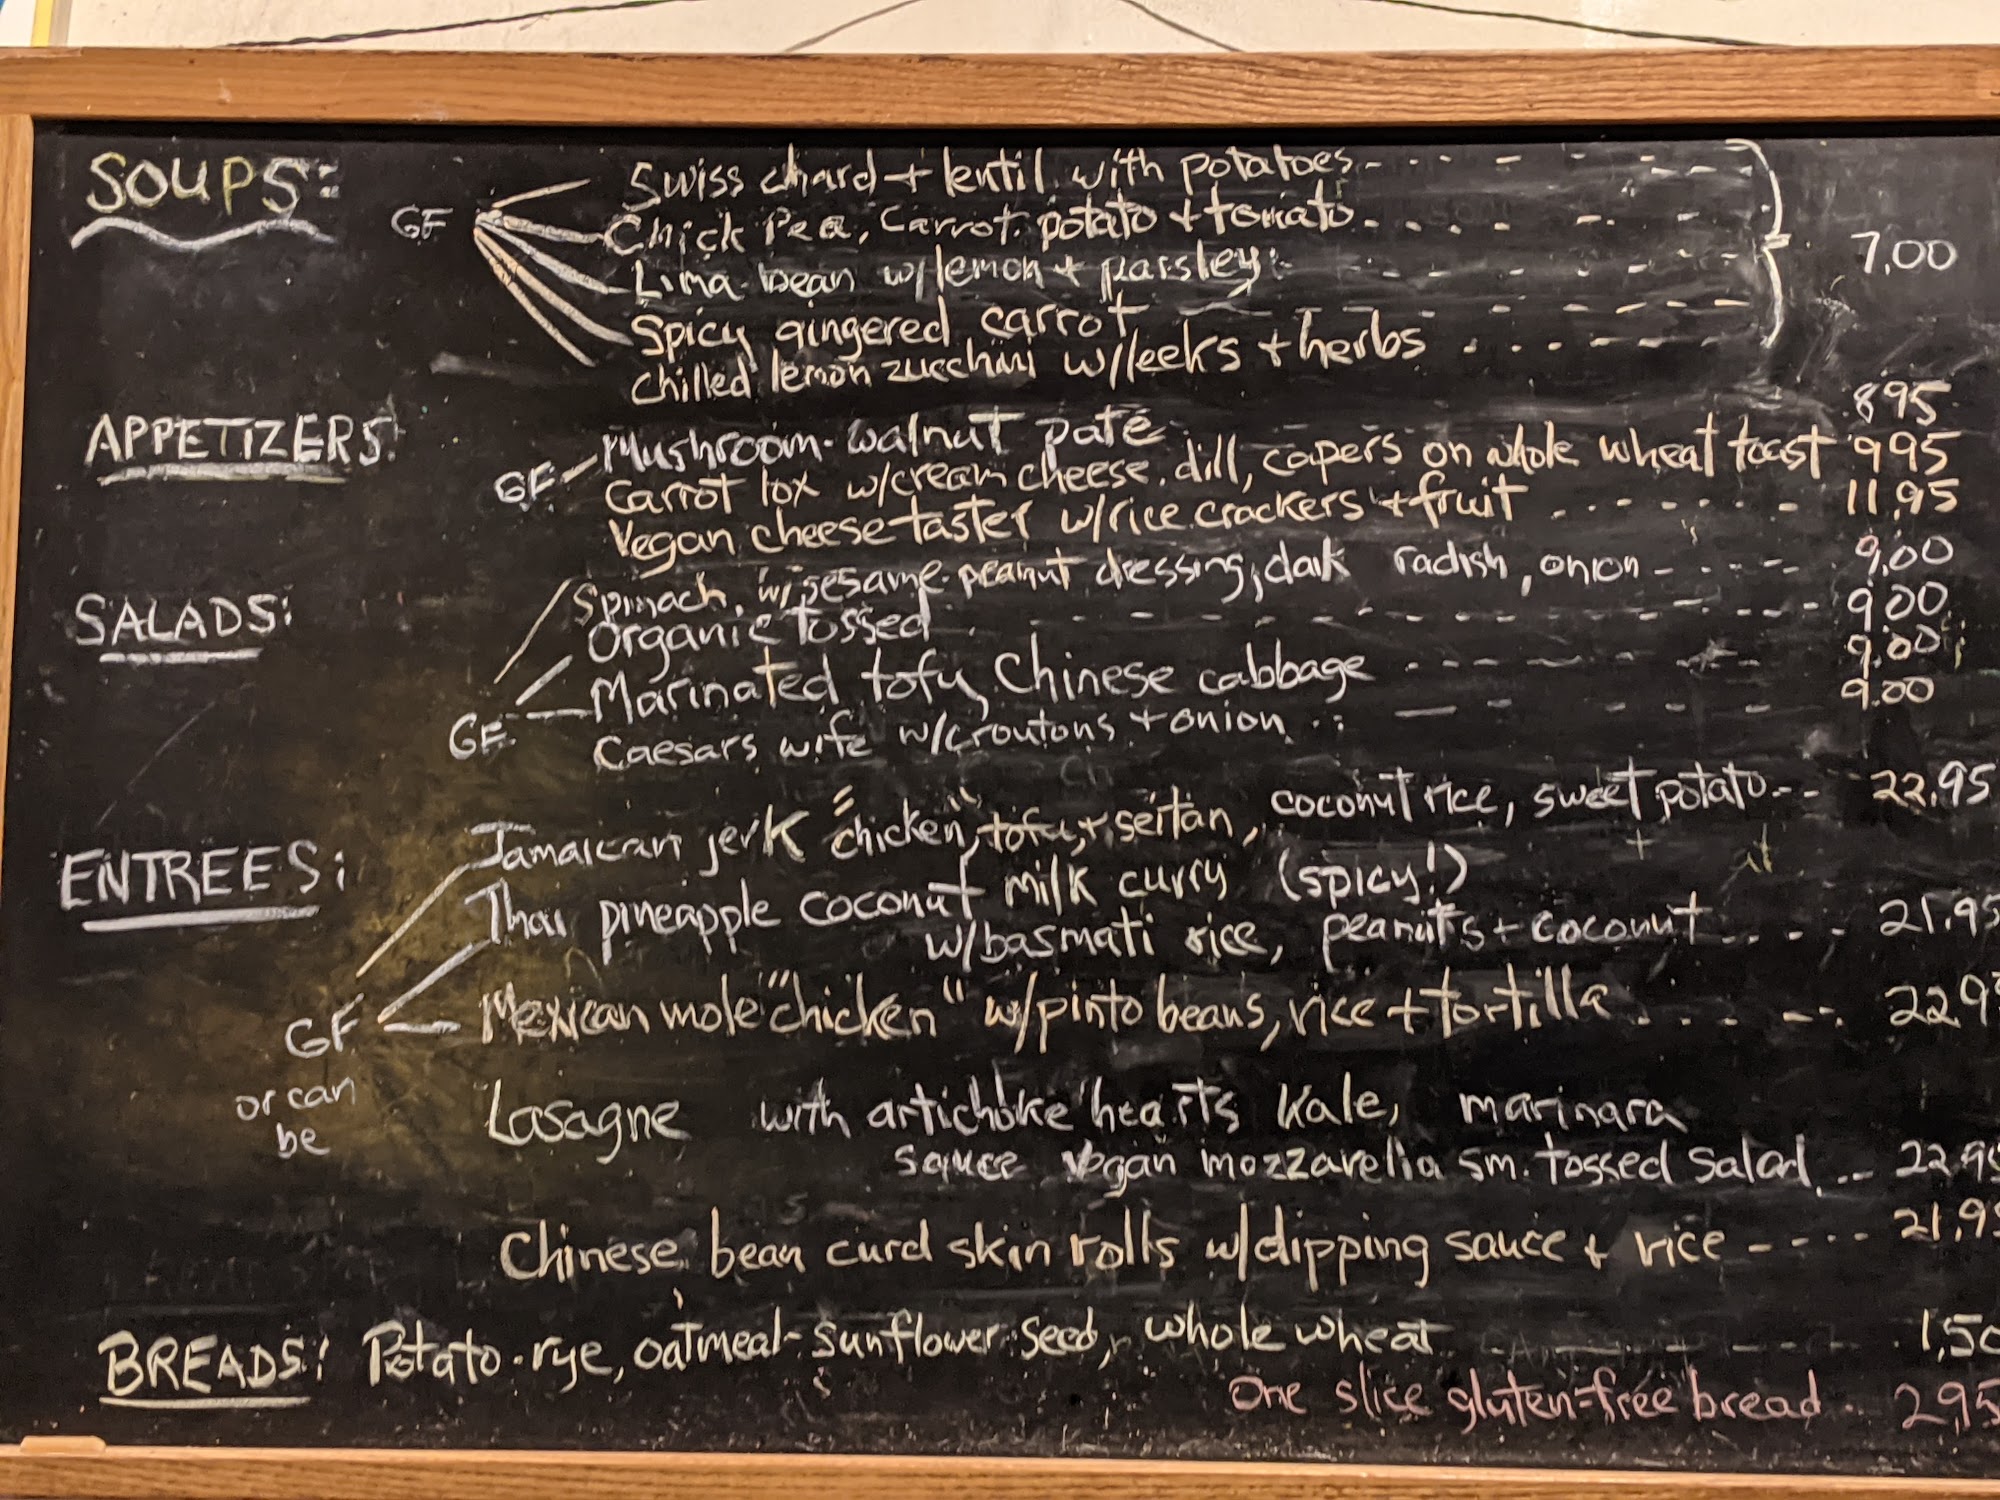 SOUPS:
GF
Swiss chard + lentil with potatoes
Chick Pea, Carrot, potato + tomato
Lima bean w/lemon + parsley
Spicy gingered carrot
chilled lemon zucchini w/leeks + herbs
7.00
APPETIZERS:
GF
Mushroom-walnut pate 8.95
Carrot lox w/cream cheese, dill, capers on whole wheat toast 9.95
Vegan cheese taster w/rice crackers + fruit 11.95
SALADS:
GF
Spinach, w/sesame-peanut dressing, daik radish, onion 9.00
Organic tossed 9.00
Marinated tofu, Chinese cabbage 9.00
Caesars wife w/croutons + onion 9.00
ENTREES:
GF
or can
be
Jamaican jerk "chicken", tofu, + seitan, coconut rice, sweet potato 22.95
Thai pineapple coconut milk curry (spicy!)
w/basmati rice, peanuts + coconut 21.95
Mexican mole "chicken" w/pinto beans, rice + tortilla 22.9
Lasagne with artichoke hearts Kale, marinara
sauce vegan mozzarella sm. tossed salad 22.95
Chinese bean curd skin rolls w/dipping sauce + rice 21.95
BREADS: Potato-rye, oatmeal-sunflower seed, whole wheat 1.50
One slice gluten-free bread 2.95